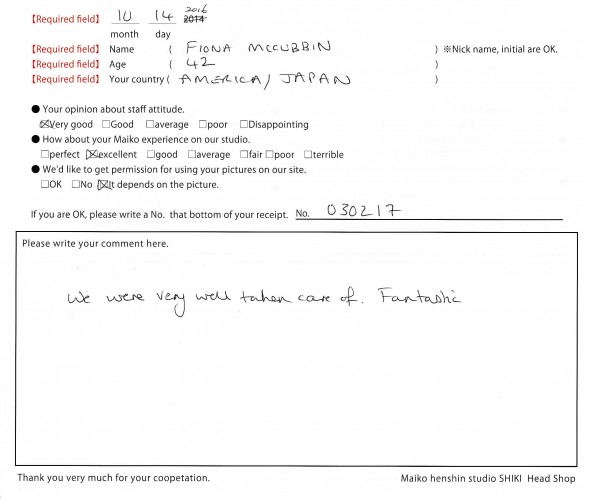 【Required field】 10 14 2016 2014
month day
【Required field】 Name ( FIONA MCCUBBIN ) ※Nick name, initial are OK.
【Required field】 Age ( 42 )
【Required field】 Your country ( AMERICA / JAPAN )
● Your opinion about staff attitude.
☒Very good □Good □average □poor □Disappointing
● How about your Maiko experience on our studio.
□perfect ☒excellent □good □average □fair □poor □terrible
● We'd like to get permission for using your pictures on our site.
□OK □No ☒It depends on the picture.
If you are OK, please write a No. that bottom of your receipt. No. 030217
Please write your comment here.
We were very well taken care of. Fantastic
Thank you very much for your coopetation. Maiko henshin studio SHIKI Head Shop